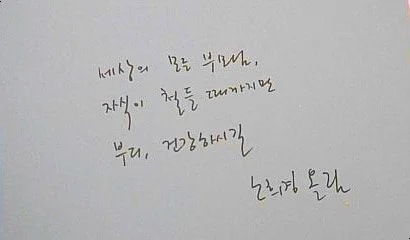 세상의 모든 부모님,
자식이 철들 때까지만
부디, 건강하시길
노희경 올림